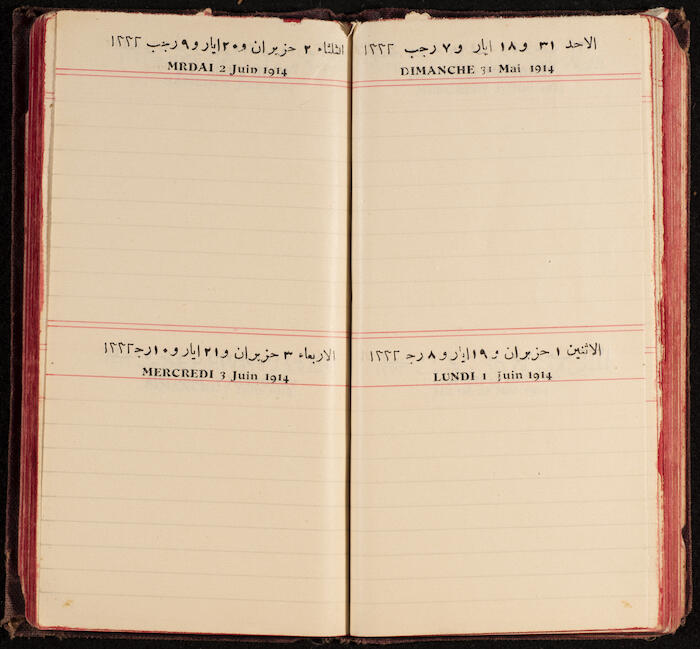 الاحد ٣١ و١٨ ايار و٧ رجب ١٣٣٢
DIMANCHE 31 Mai 1914
الاثنين ١ حزيران و١٩ ايار و٨ رجـ ١٣٣٢
LUNDI 1 Juin 1914
الثلثاء ٢ حزيران و٢٠ ايار و٩ رجب ١٣٣٢
MRDAI 2 Juin 1914
الاربعاء ٣ حزيران و٢١ ايار و١٠ رجـ ١٣٣٢
MERCREDI 3 Juin 1914